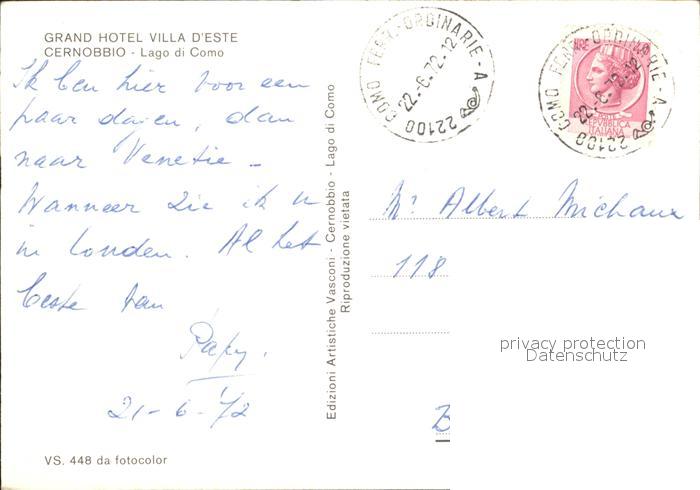 GRAND HOTEL VILLA D'ESTE
CERNOBBIO - Lago di Como
Ik ben hier voor een
paar dagen, dan
naar Venetie -
Wanneer zie ik u
in Londen. Al het
beste van
Papy.
21-6-'72
VS. 448 da fotocolor
Edizioni Artistiche Vasconi - Cernobbio - Lago di Como
Riproduzione vietata
22100 COMO FERR.-ORDINARIE - A
22.-6.72.12
22100 COMO FERR.-ORDINARIE - A
22.-6.72.12
REPVBBLICA
ITALIANA
Mr. Albert Michaux
118
B
privacy protection
Datenschutz